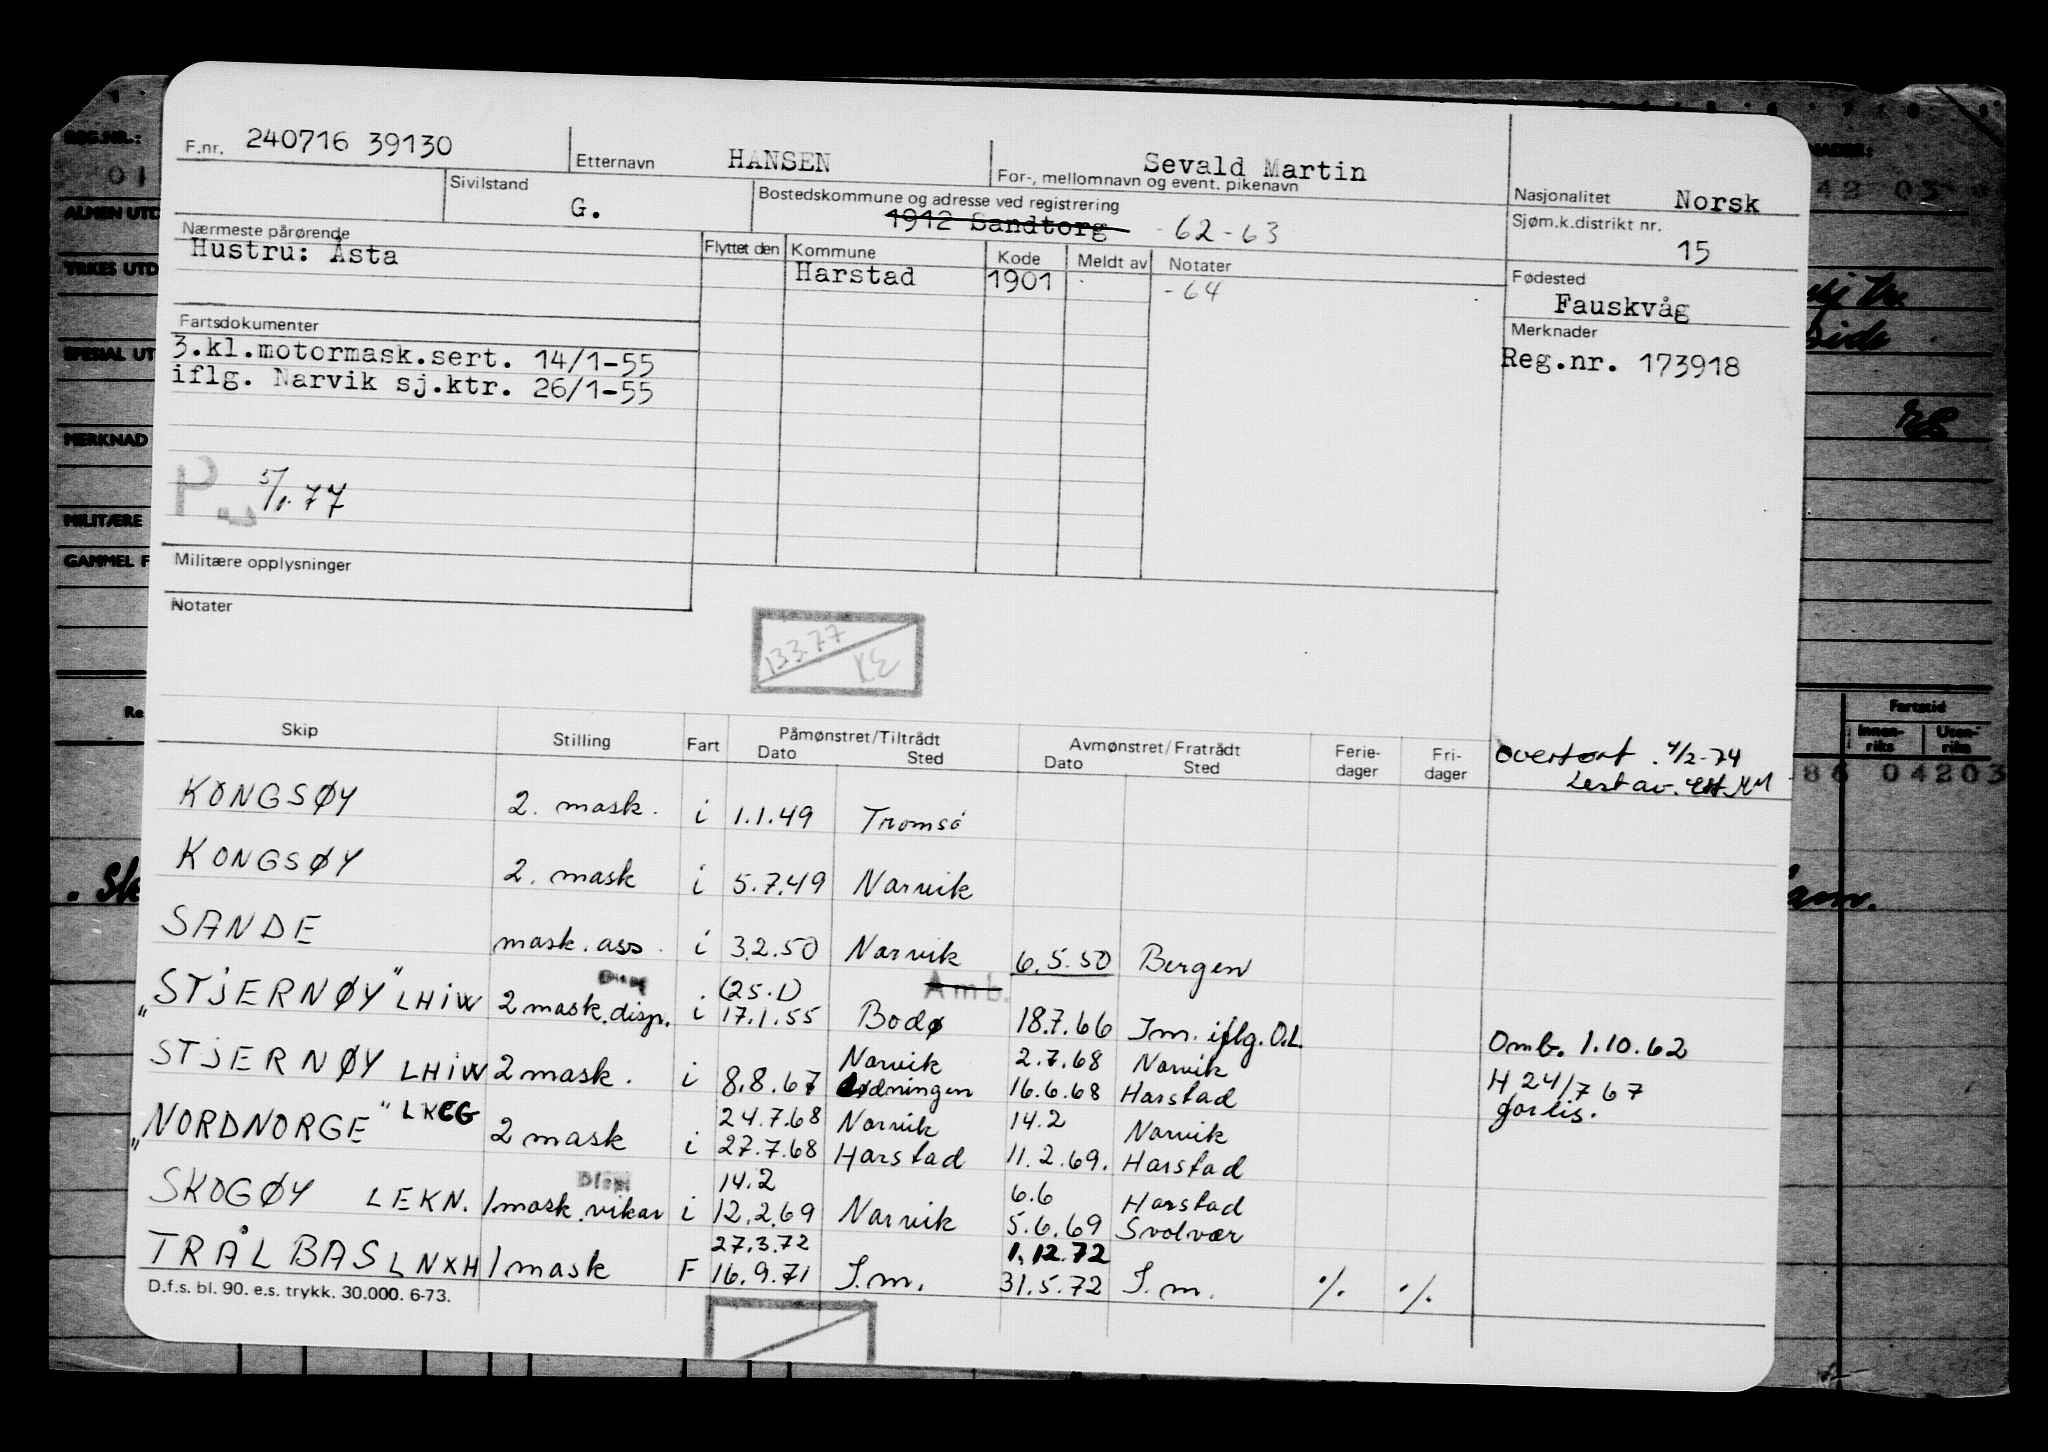 F.nr. 240716 39130
Etternavn HANSEN
Sevald Martin
For-, mellomnavn og event. pikenavn
Nasjonalitet Norsk
Sivilstand
G.
Bostedskommune og adresse ved registrering
1912 Sandtorg - 62-63
Sjøm.k.distrikt nr.
15
Nærmeste pårørende
Hustru: Åsta
Flyttet den Kommune Kode Meldt av Notater
Harstad 1901 -64
Fødested
Fauskvåg
Fartsdokumenter
3.kl.motormask.sert. 14/1-55
iflg. Narvik sj.ktr. 26/1-55
Merknader
Reg.nr. 173918
5/1.77
Militære opplysninger
Notater
KE
Skip Stilling Fart Påmønstret/Tiltrådt Dato Sted Avmønstret/Fratrådt Dato Sted Ferie-dager Fri-dager
overført. 4/2-74
KONGSØY 2. mask. i 1.1.49 Tromsø
KONGSØY 2. mask i 5.7.49 Narvik
SANDE mask. ass. i 3.2.50 Narvik 6.5.50 Bergen
Amb.
(25.1)
"STJERNØY" LHIW 2 mask. disp. i 17.1.55 Bodø 18.7.66 I m. iflg. O.L.
Omb. 1.10.62
Narvik 2.7.68 Narvik
STJERNØY LHIW 2 mask. i 8.8.67 Lødningen 16.6.68 Harstad
H 24/7 67
forlis.
24.7.68 Narvik 14.2 Narvik
"NORDNORGE" LKCG 2 mask i 27.7.68 Harstad 11.2.69. Harstad
14.2 6.6 Harstad
SKOGØY LEKN. 1 mask. vikar i 12.2.69 Narvik 5.6.69 Svolvær
27.3.72 1.12.72
TRÅLBAS LNXH 1 mask F 16.9.71 I.m. 31.5.72 I.m. ./. ./.
D.f.s. bl. 90. e.s. trykk. 30.000. 6-73.
REG.NR.:
01
ALMEN UTD
YRKES UTD
SPESIAL UT
MERKNAD
MILITÆRE
GAMMEL F
42 03
Fartstid
Innen-riks Uten-riks
86 04203